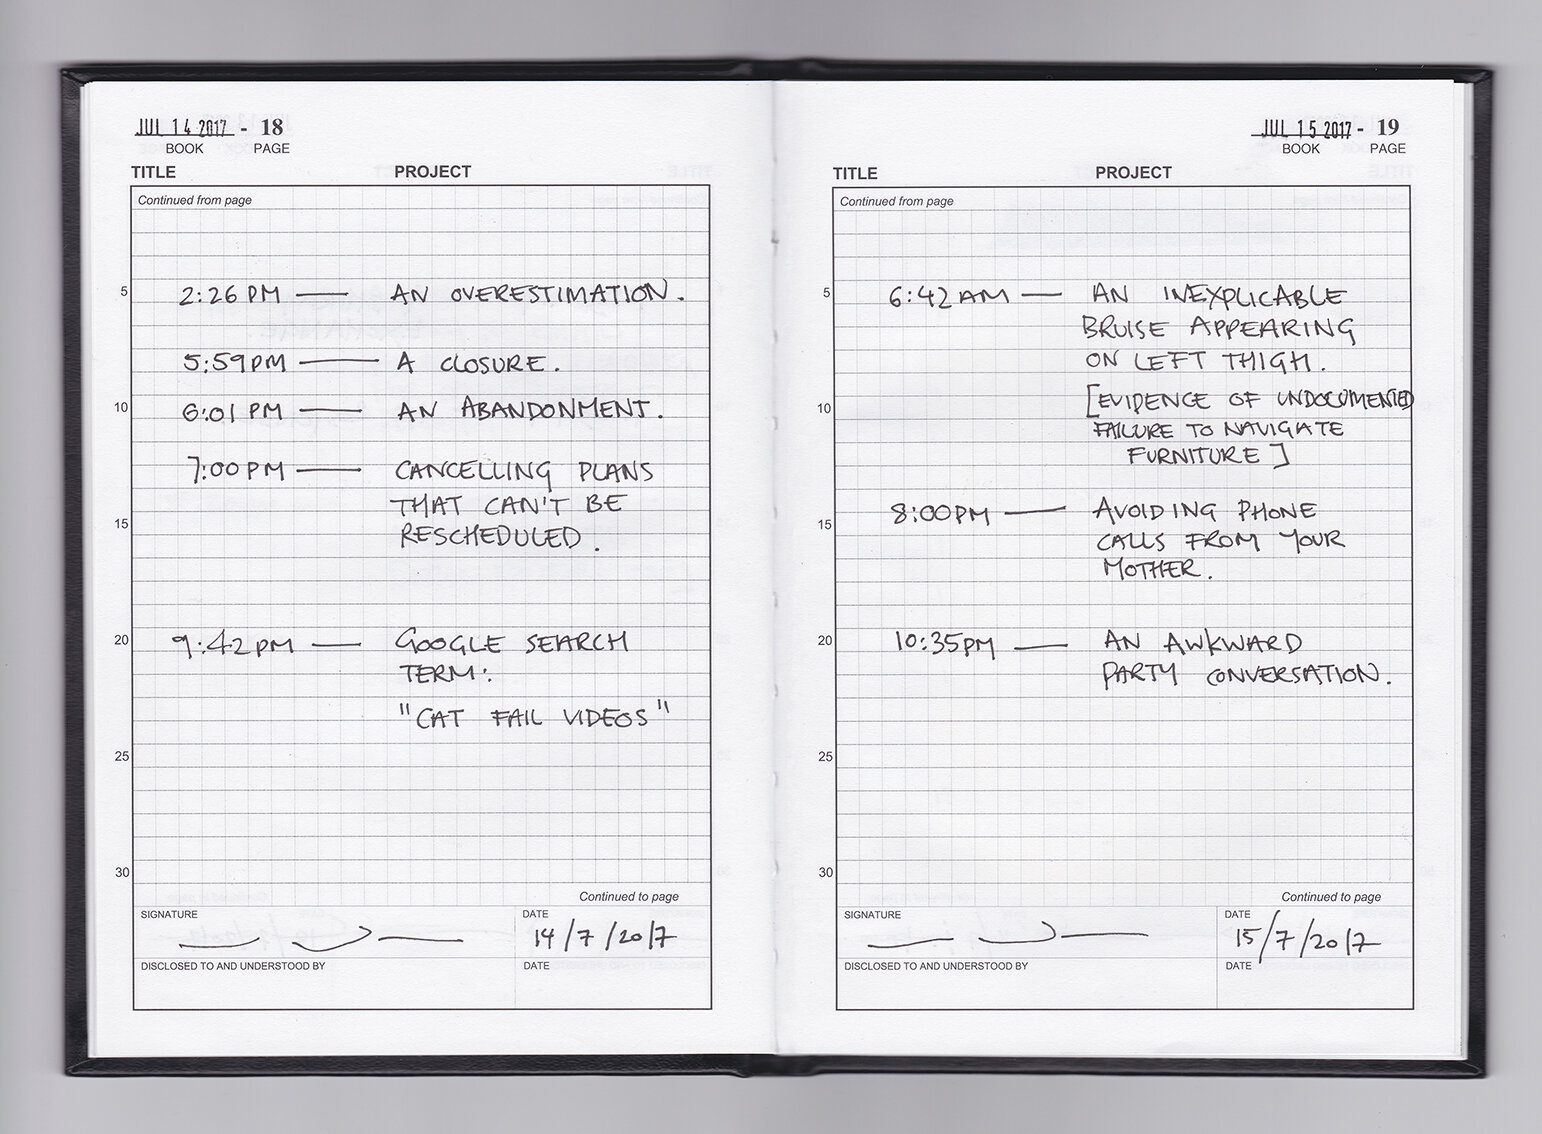 JUL 14 2017 - 18
BOOK PAGE
TITLE PROJECT
Continued from page
5
2:26 PM — AN OVERESTIMATION.
5:59PM — A CLOSURE.
10
6:01 PM — AN ABANDONMENT.
7:00PM — CANCELLING PLANS
THAT CAN'T BE
15
RESCHEDULED.
20
9:42PM — GOOGLE SEARCH
TERM:
"CAT FAIL VIDEOS"
25
30
Continued to page
SIGNATURE DATE
14/7/2017
DISCLOSED TO AND UNDERSTOOD BY DATE
JUL 15 2017 - 19
BOOK PAGE
TITLE PROJECT
Continued from page
5
6:42AM — AN INEXPLICABLE
BRUISE APPEARING
ON LEFT THIGH.
10
[EVIDENCE OF UNDOCUMENTED
FAILURE TO NAVIGATE
FURNITURE]
8:00PM — AVOIDING PHONE
15
CALLS FROM YOUR
MOTHER.
20
10:35PM — AN AWKWARD
PARTY CONVERSATION.
25
30
Continued to page
SIGNATURE DATE
15/7/2017
DISCLOSED TO AND UNDERSTOOD BY DATE